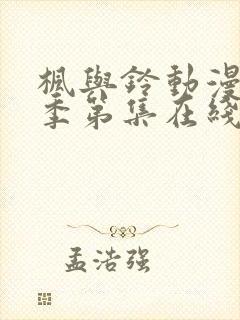 楓與鈴動漫
季第集在綫
孟浩强